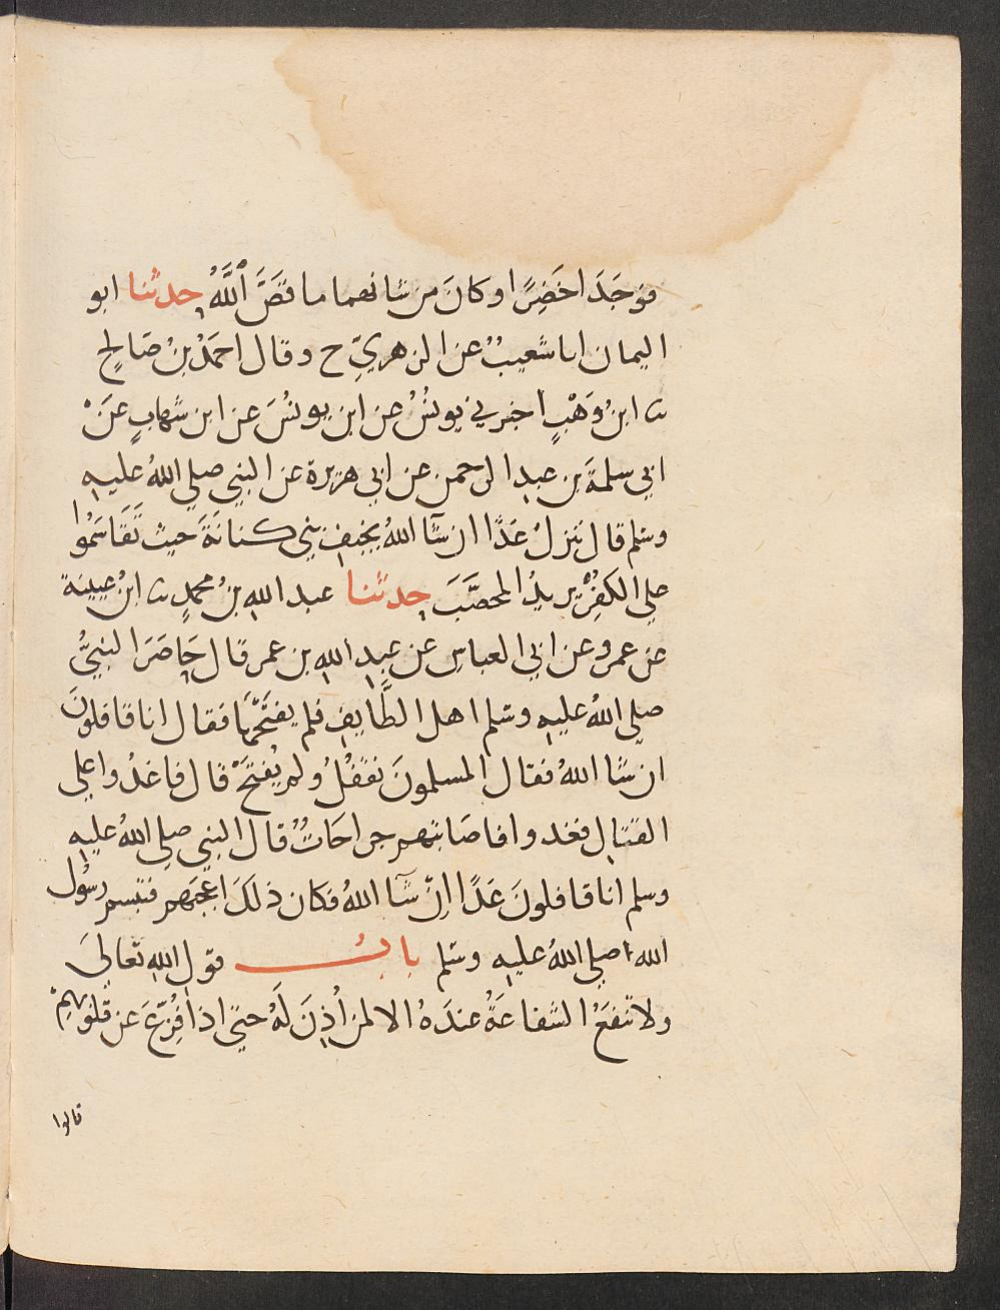 فوَجَدَا خَضِرًا وكانَ من شانهما ما قَصَّ ٱللَّهُ حدثنا ابو
اليمان انا شعيبٌ عن الزهريِّ ح وقال احمَدُ بنُ صَالحٍ
ثنا ابنُ وَهْبٍ اخبرني يونسُ عن ابن يونسَ عن ابن شهابٍ عَنْ
ابي سلمةَ بن عبد الرحمن عن ابي هريرة عن النبي صلي اللهُ عليهِ
وسلم قال نَنزلُ غدًا ان شآ اللهُ بخيفِ بني كنانَةَ حيث تَقَاسَمُوا
علي الكفرِ يريدُ المحصَّبَ حدثنا عبد اللهِ بنُ محمدٍ ثنا ابنُ عيينةَ
عن عمرو عن ابي العباسِ عن عبدِ اللهِ بن عمر قال حَاصَرَ النبيُّ
صلي اللهُ عليهِ وسلم اهل الطَّايِفِ فلم يفتَحْهَا فقال انا قافلونَ
ان شا اللهُ فقال المسلمونَ نقفُلُ ولم يُفتَحْ قال فاغدُوا علي
القتالِ فغدوا فاصَابتهم جراحَاتٌ قال النبي صلي اللهُ عليهِ
وسلم انا قافلونَ غَدًا اِنْ شآ اللهُ فكان ذلكَ اعْجَبَهم فتبسم رسُول
الله صلي اللهُ عليهِ وسَلم بابُ قولِ اللهِ تعاليَ
ولا تنفعُ الشفاعَةُ عندَهُ الا لمن اُذِنَ لَهُ حتي اذا فُزِّعَ عن قُلُوبِهِمْ
قالوا